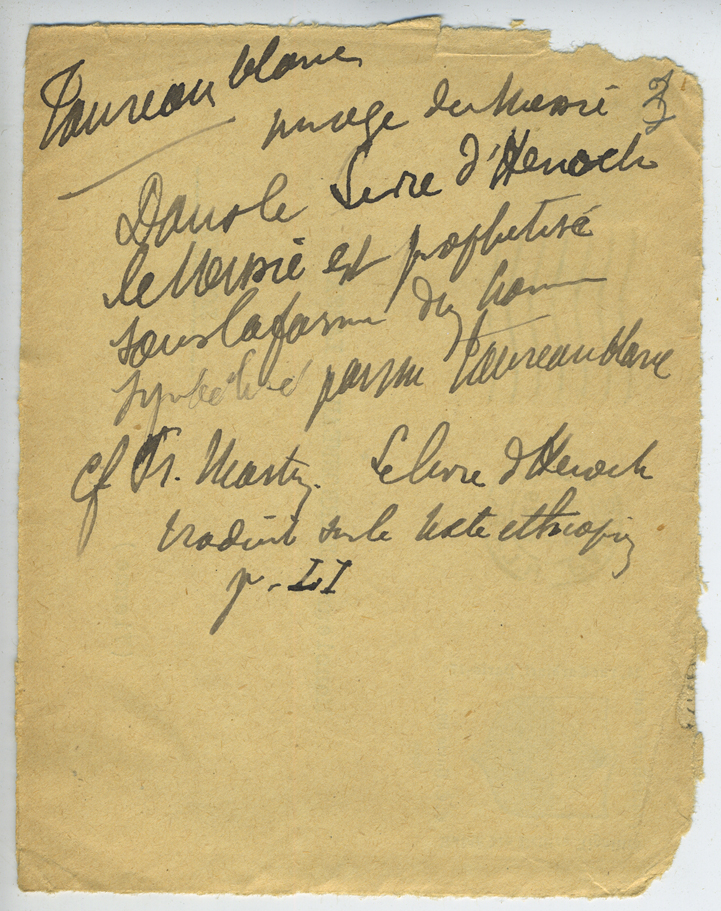 Taureau blanc
image du Messie 3
Dans le Livre d'Henoch
le Messie est prophetisé
sous la forme d'un homme
symbolisé par un taureau blanc
cf Fr. Martin. Le livre d'Henoch
traduit sur le texte ethiopien
p. LI